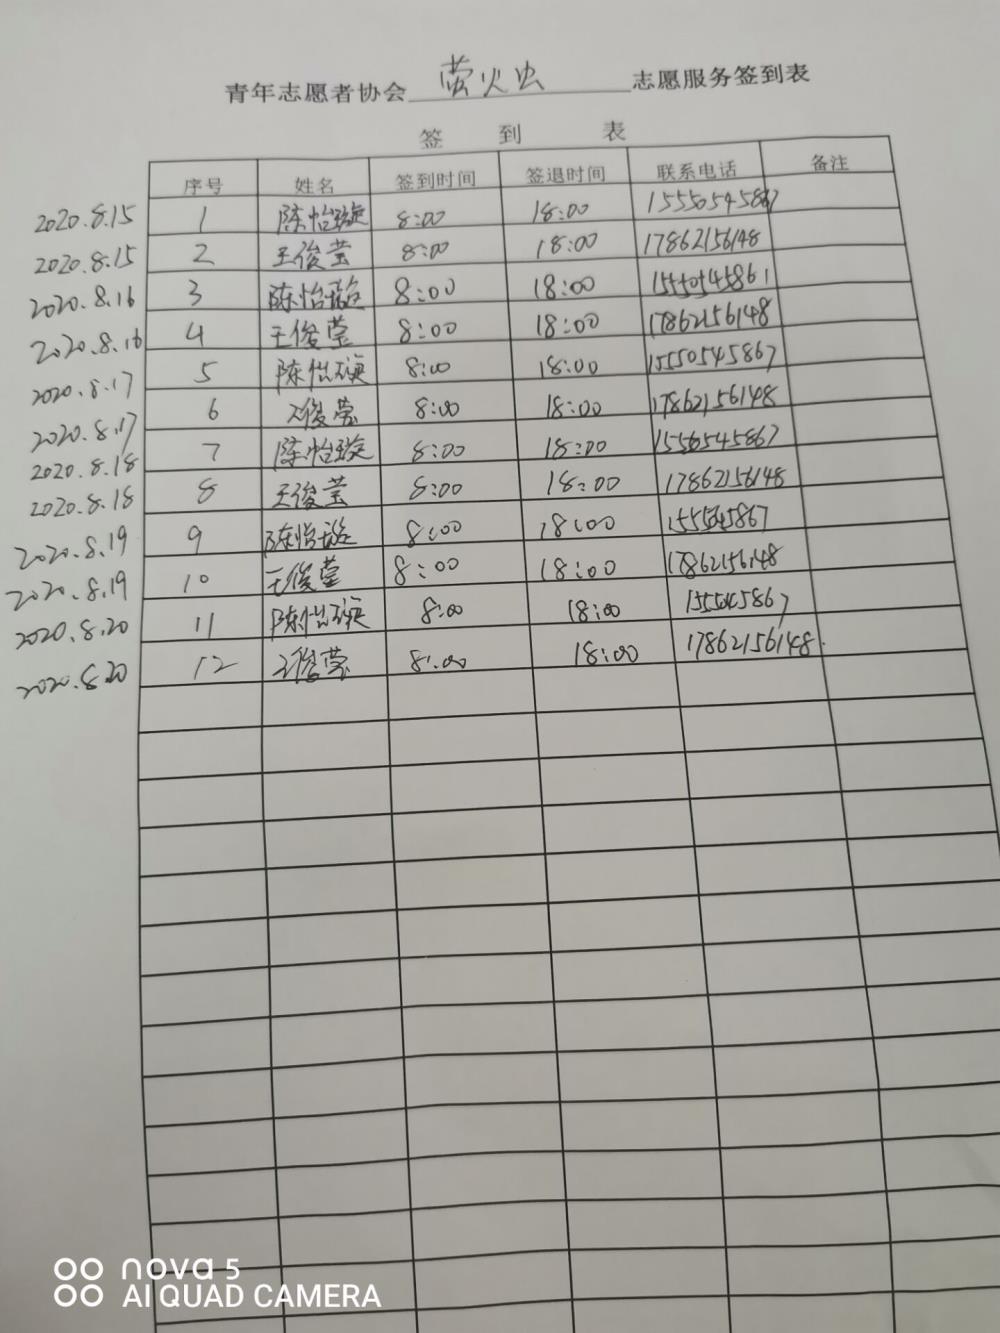 青年志愿者协会 萤火虫 志愿服务签到表
签 到 表
序号 姓名 签到时间 签退时间 联系电话 备注
2020.8.15 1 陈怡璇 8:00 18:00 15550545867
2020.8.15 2 王俊莹 8:00 18:00 17862156148
2020.8.16 3 陈怡璇 8:00 18:00 15550545861
2020.8.16 4 王俊莹 8:00 18:00 17862156148
2020.8.17 5 陈怡璇 8:00 18:00 15550545867
2020.8.17 6 王俊莹 8:00 18:00 17862156148
2020.8.18 7 陈怡璇 8:00 18:00 15550545867
2020.8.18 8 王俊莹 8:00 18:00 17862156148
2020.8.19 9 陈怡璇 8:00 18:00
2020.8.19 10 王俊莹 8:00 18:00 17862156148
2020.8.20 11 陈怡璇 8:00 18:00
2020.8.20 12 王俊莹 8:00 18:00 17862156148.
nova 5
AI QUAD CAMERA